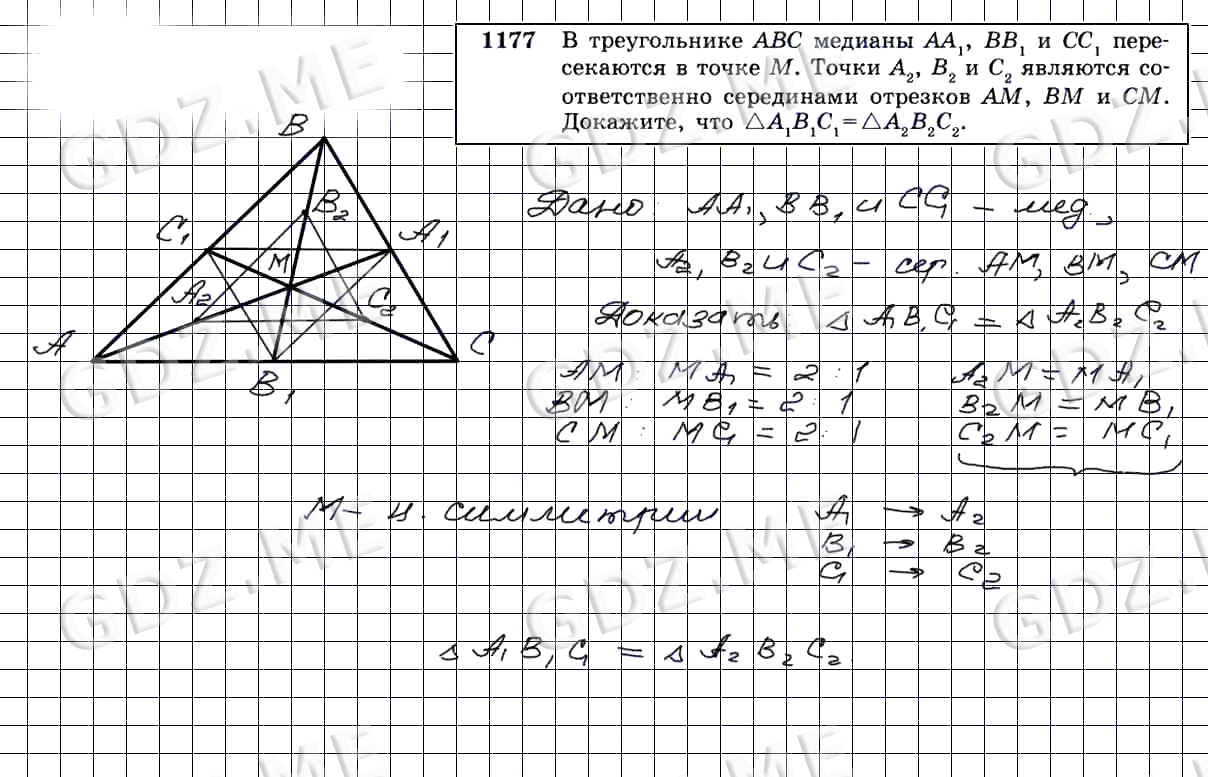 1177 В треугольнике ABC медианы AA₁, BB₁ и CC₁ пере-
секаются в точке M. Точки A₂, B₂ и C₂ являются со-
ответственно серединами отрезков AM, BM и CM.
Докажите, что △A₁B₁C₁=△A₂B₂C₂.
B
B₂
C₁
A₁
M
A₂
C₂
A
C
B₁
Дано: AA₁, BB₁ и CC₁ – мед.,
A₂, B₂ и C₂ – сер. AM, BM, CM
Доказать: △ A₁B₁C₁ = △ A₂B₂C₂
AM : MA₁ = 2 : 1 A₂M = MA₁
BM : MB₁ = 2 : 1 B₂M = MB₁
CM : MC₁ = 2 : 1 C₂M = MC₁
M – ц. симметрии A₁ → A₂
B₁ → B₂
C₁ → C₂
△ A₁B₁C₁ = △ A₂B₂C₂
GDZ.ME
GDZ.ME
GDZ.ME
GDZ.ME
GDZ.ME
GDZ.ME
GDZ.ME
GDZ.ME
GDZ.ME
GDZ.ME
GDZ.ME
GDZ.ME